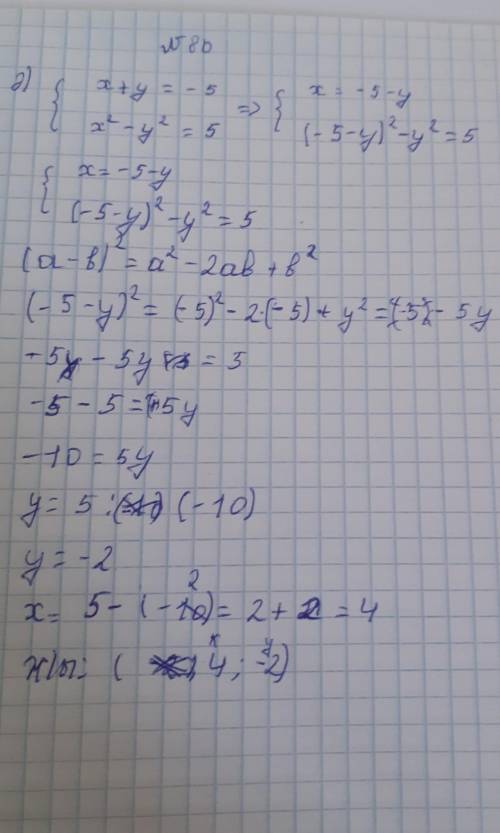 №80
д) { x+y = -5 => { x = -5-y
x² - y² = 5 (-5-y)² - y² = 5
{ x = -5-y
(-5-y)² - y² = 5
(a-b)² = a² - 2ab + b²
(-5-y)² = (-5)² - 2·(-5) + y² = (-5) - 5y
-5 - 5y = 5
-5 - 5 = 5y
-10 = 5y
y = 5 : (-10)
y = -2
x = 5 - (-2) = 2 + 2 = 4
( 4 ; -2)